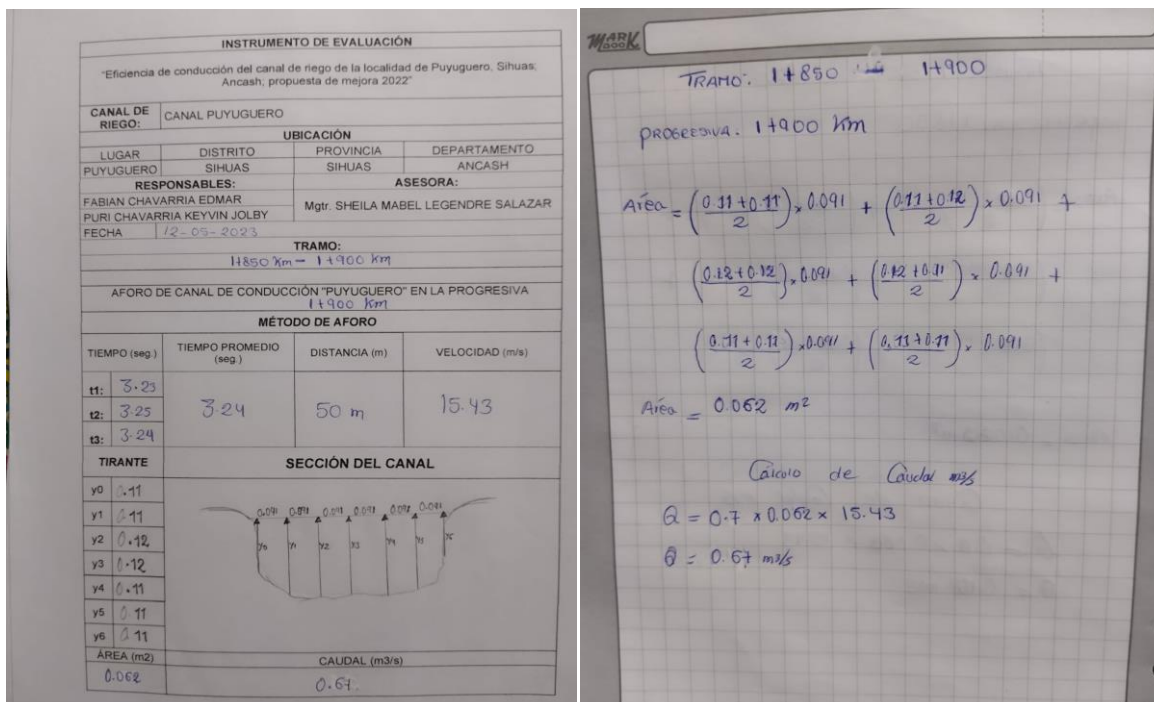 INSTRUMENTO DE EVALUACIÓN
"Eficiencia de conducción del canal de riego de la localidad de Puyuguero, Sihuas;
Ancash; propuesta de mejora 2022"
CANAL DE RIEGO: CANAL PUYUGUERO
UBICACIÓN
LUGAR DISTRITO PROVINCIA DEPARTAMENTO
PUYUGUERO SIHUAS SIHUAS ANCASH
RESPONSABLES: ASESORA:
FABIAN CHAVARRIA EDMAR
PURI CHAVARRIA KEYVIN JOLBY
Mgtr. SHEILA MABEL LEGENDRE SALAZAR
FECHA 12-05-2023
TRAMO:
1+850 Km — 1+900 Km
AFORO DE CANAL DE CONDUCCIÓN "PUYUGUERO" EN LA PROGRESIVA
1+900 Km
MÉTODO DE AFORO
TIEMPO (seg.) TIEMPO PROMEDIO (seg.) DISTANCIA (m) VELOCIDAD (m/s)
t1:
t2: 3.25
t3: 3.24
3.24 50 m 15.43
TIRANTE SECCIÓN DEL CANAL
y0 0.11
y1 0.11
y2 0.12
y3 0.12
y4 0.11
y5 0.11
y6 0.11
0.091 0.091 0.091 0.091 0.091 0.091
y0 y1 y2 y3 y4 y5
ÁREA (m2) CAUDAL (m3/s)
0.062 0.67
MARK
TRAMO: 1+850 1+900
PROGRESIVA: 1+900 Km
Área = (0.11+0.11/2) x 0.091 + (0.11+0.12/2) x 0.091 +
(0.12+0.12/2) x 0.091 + (0.12+0.11/2) x 0.091 +
(0.11+0.11/2) x 0.091 + (0.11+0.11/2) x 0.091
Área = 0.062 m²
Cálculo de Caudal m3/s
Q = 0.7 x 0.062 x 15.43
Q = 0.67 m3/s